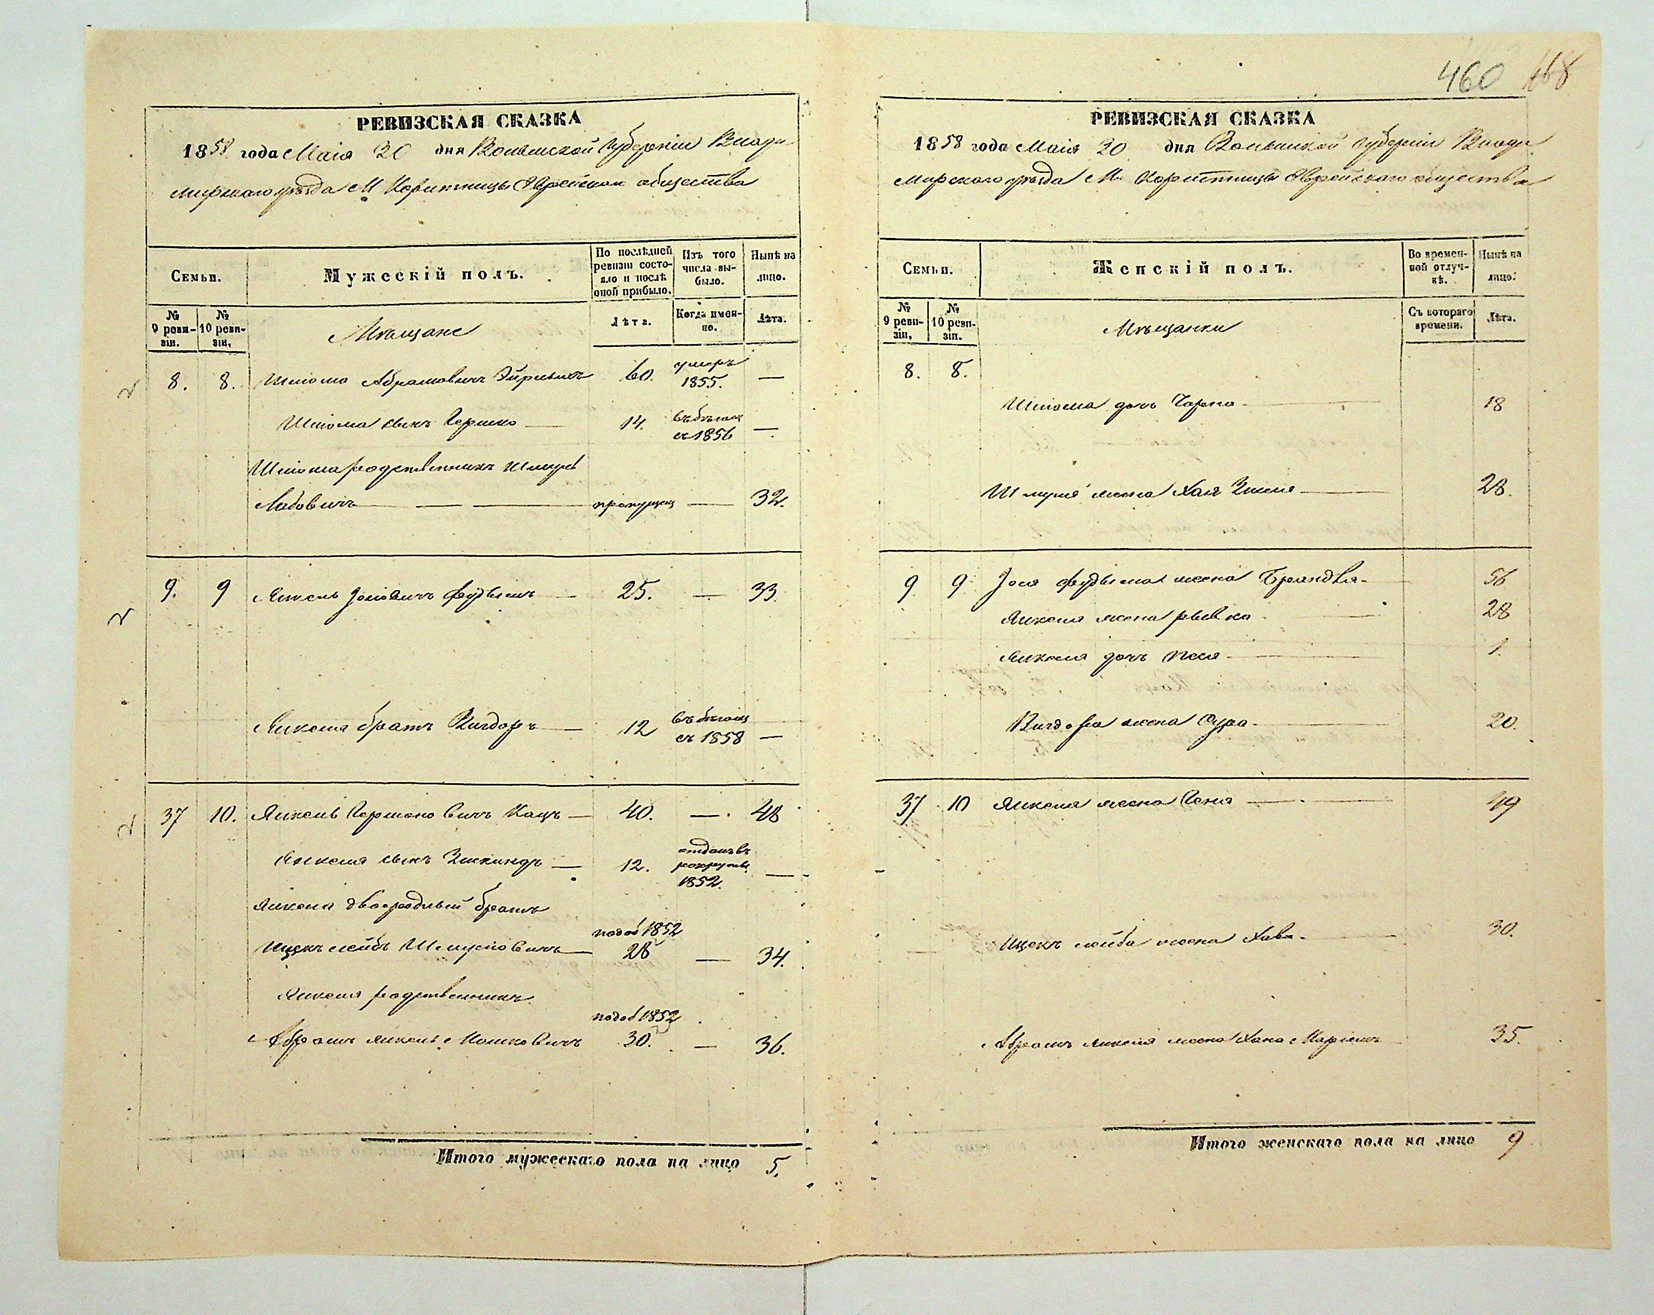 460 468
РЕВИЗСКАЯ СКАЗКА
1858 года Маія 20 дня Волынской Губерніи Влади
мирскаго уѣзда М. Корытницы Еврейскаго общества
Семьи.
Мужескій полъ.
По послѣдней ревизіи состояло и послѣ оной прибыло.
Изъ того числа выбыло.
Нынѣ на лицо.
№ 9 ревизіи.
№ 10 ревизіи.
Мѣщане
Лѣта.
Когда именно.
Лѣта.
8. 8. Шлома Абрамовичъ 60. умеръ 1855. —
Шлома сынъ Гершко — 14. въ бѣгахъ съ 1856 —
Шлома родственникъ Шмуль
Лейбовичъ — — — пропущен — 32.
9. 9 Янкель Іосіовичъ Фудымъ — 25. — 33.
Янкеля братъ Вигдоръ — 12 въ бѣгахъ съ 1858 —
37 10. Янкель Гершковичъ Кацъ — 40. — 48
Янкеля сынъ Зискиндъ — 12. отданъ въ рекруты 1852. —
Янкеля двоюродный братъ
Ицекъ Лейбъ Шмулiовичъ — по доб 1852 28 — 34.
Янкеля родственникъ
Абрамъ Янкель Мошковичъ по доб 1852 30. — 36.
Итого мужескаго пола на лицо 5.
РЕВИЗСКАЯ СКАЗКА
1858 года Маія 20 дня Волынской Губерніи Влади
мирскаго уѣзда М. Корытницы Еврейскаго общества
Семьи.
Женскій полъ.
Во временной отлучкѣ.
Нынѣ на лицо.
№ 9 ревизіи.
№ 10 ревизіи.
Мѣщанки
Съ котораго времени.
Лѣта.
8. 8.
Шлома дочь Чарна — 18
Шмуля жена Хая — 28.
9 9. Іося Фудыма жена Брандля — 56
Янкеля жена Рывка — 28
Янкеля дочь Песя — 1.
Вигдора жена Сура — 20.
37 10 Янкеля жена Геня — 49
Ицекъ Лейба жена Хава — 30.
Абрамъ Янкеля жена Хана Маріемъ 35.
Итого женскаго пола на лицо 9